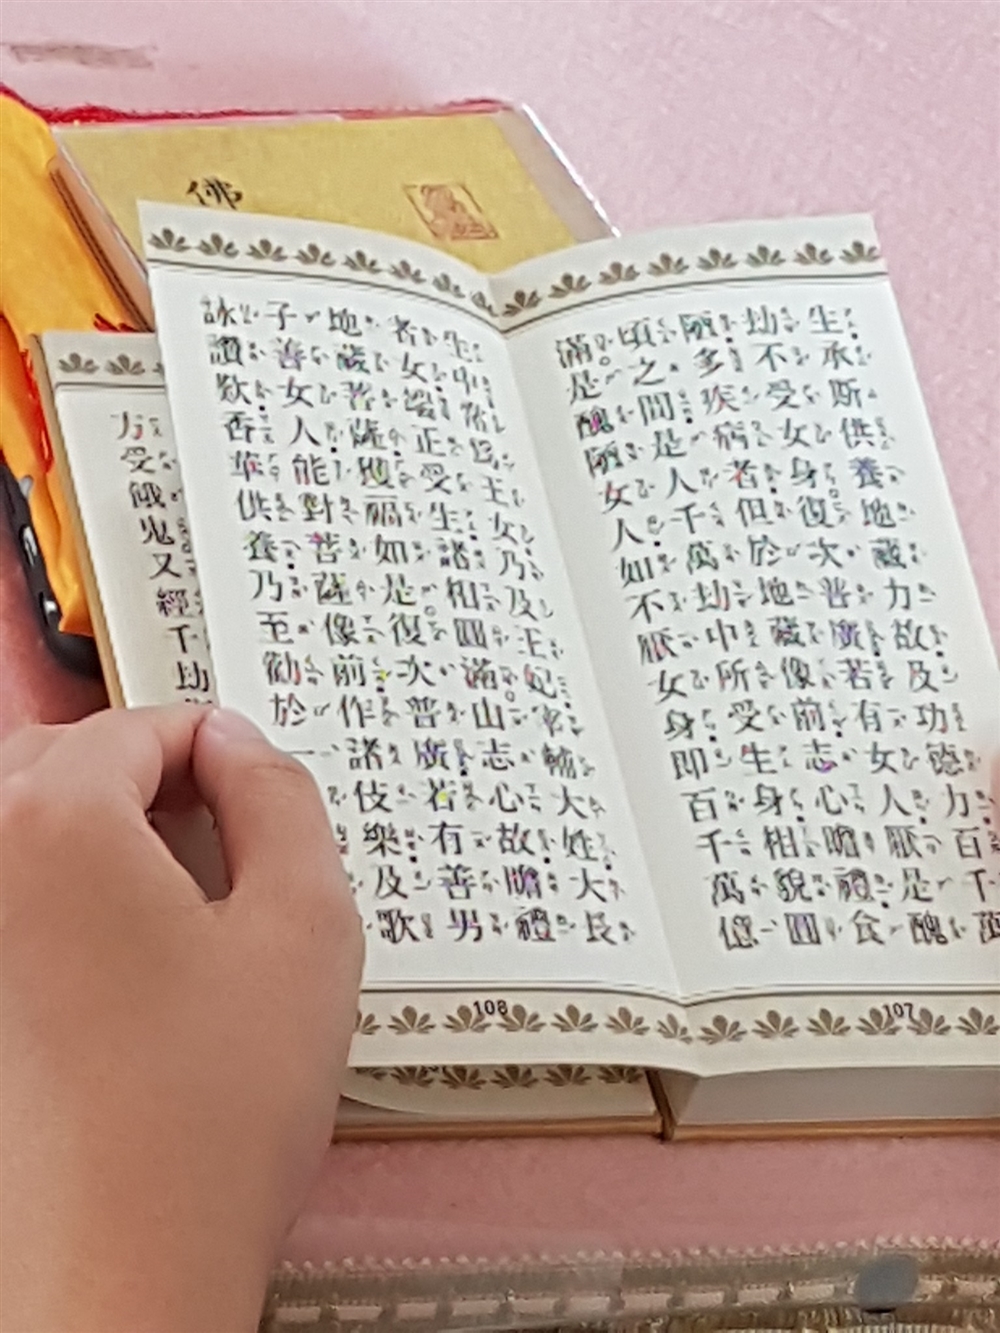 佛
生承斯供養地藏力故及功德力百千萬
劫不受女身復次普廣若有女人厭是醜
陋多疾病者但於地藏像前志心瞻禮食
頃之間是人千萬劫中所受生身相貌圓
滿。是醜陋女人如不厭女身即百千萬億
107
生中常為王女乃及王妃宰輔大姓大長
者女端正受生諸相圓滿。由志心故瞻禮
地藏菩薩獲福如是。復次普廣若有善男
子善女人能對菩薩像前作諸伎樂及歌
詠讚歎香華供養乃至勸於一
108
方受餓鬼又經千劫